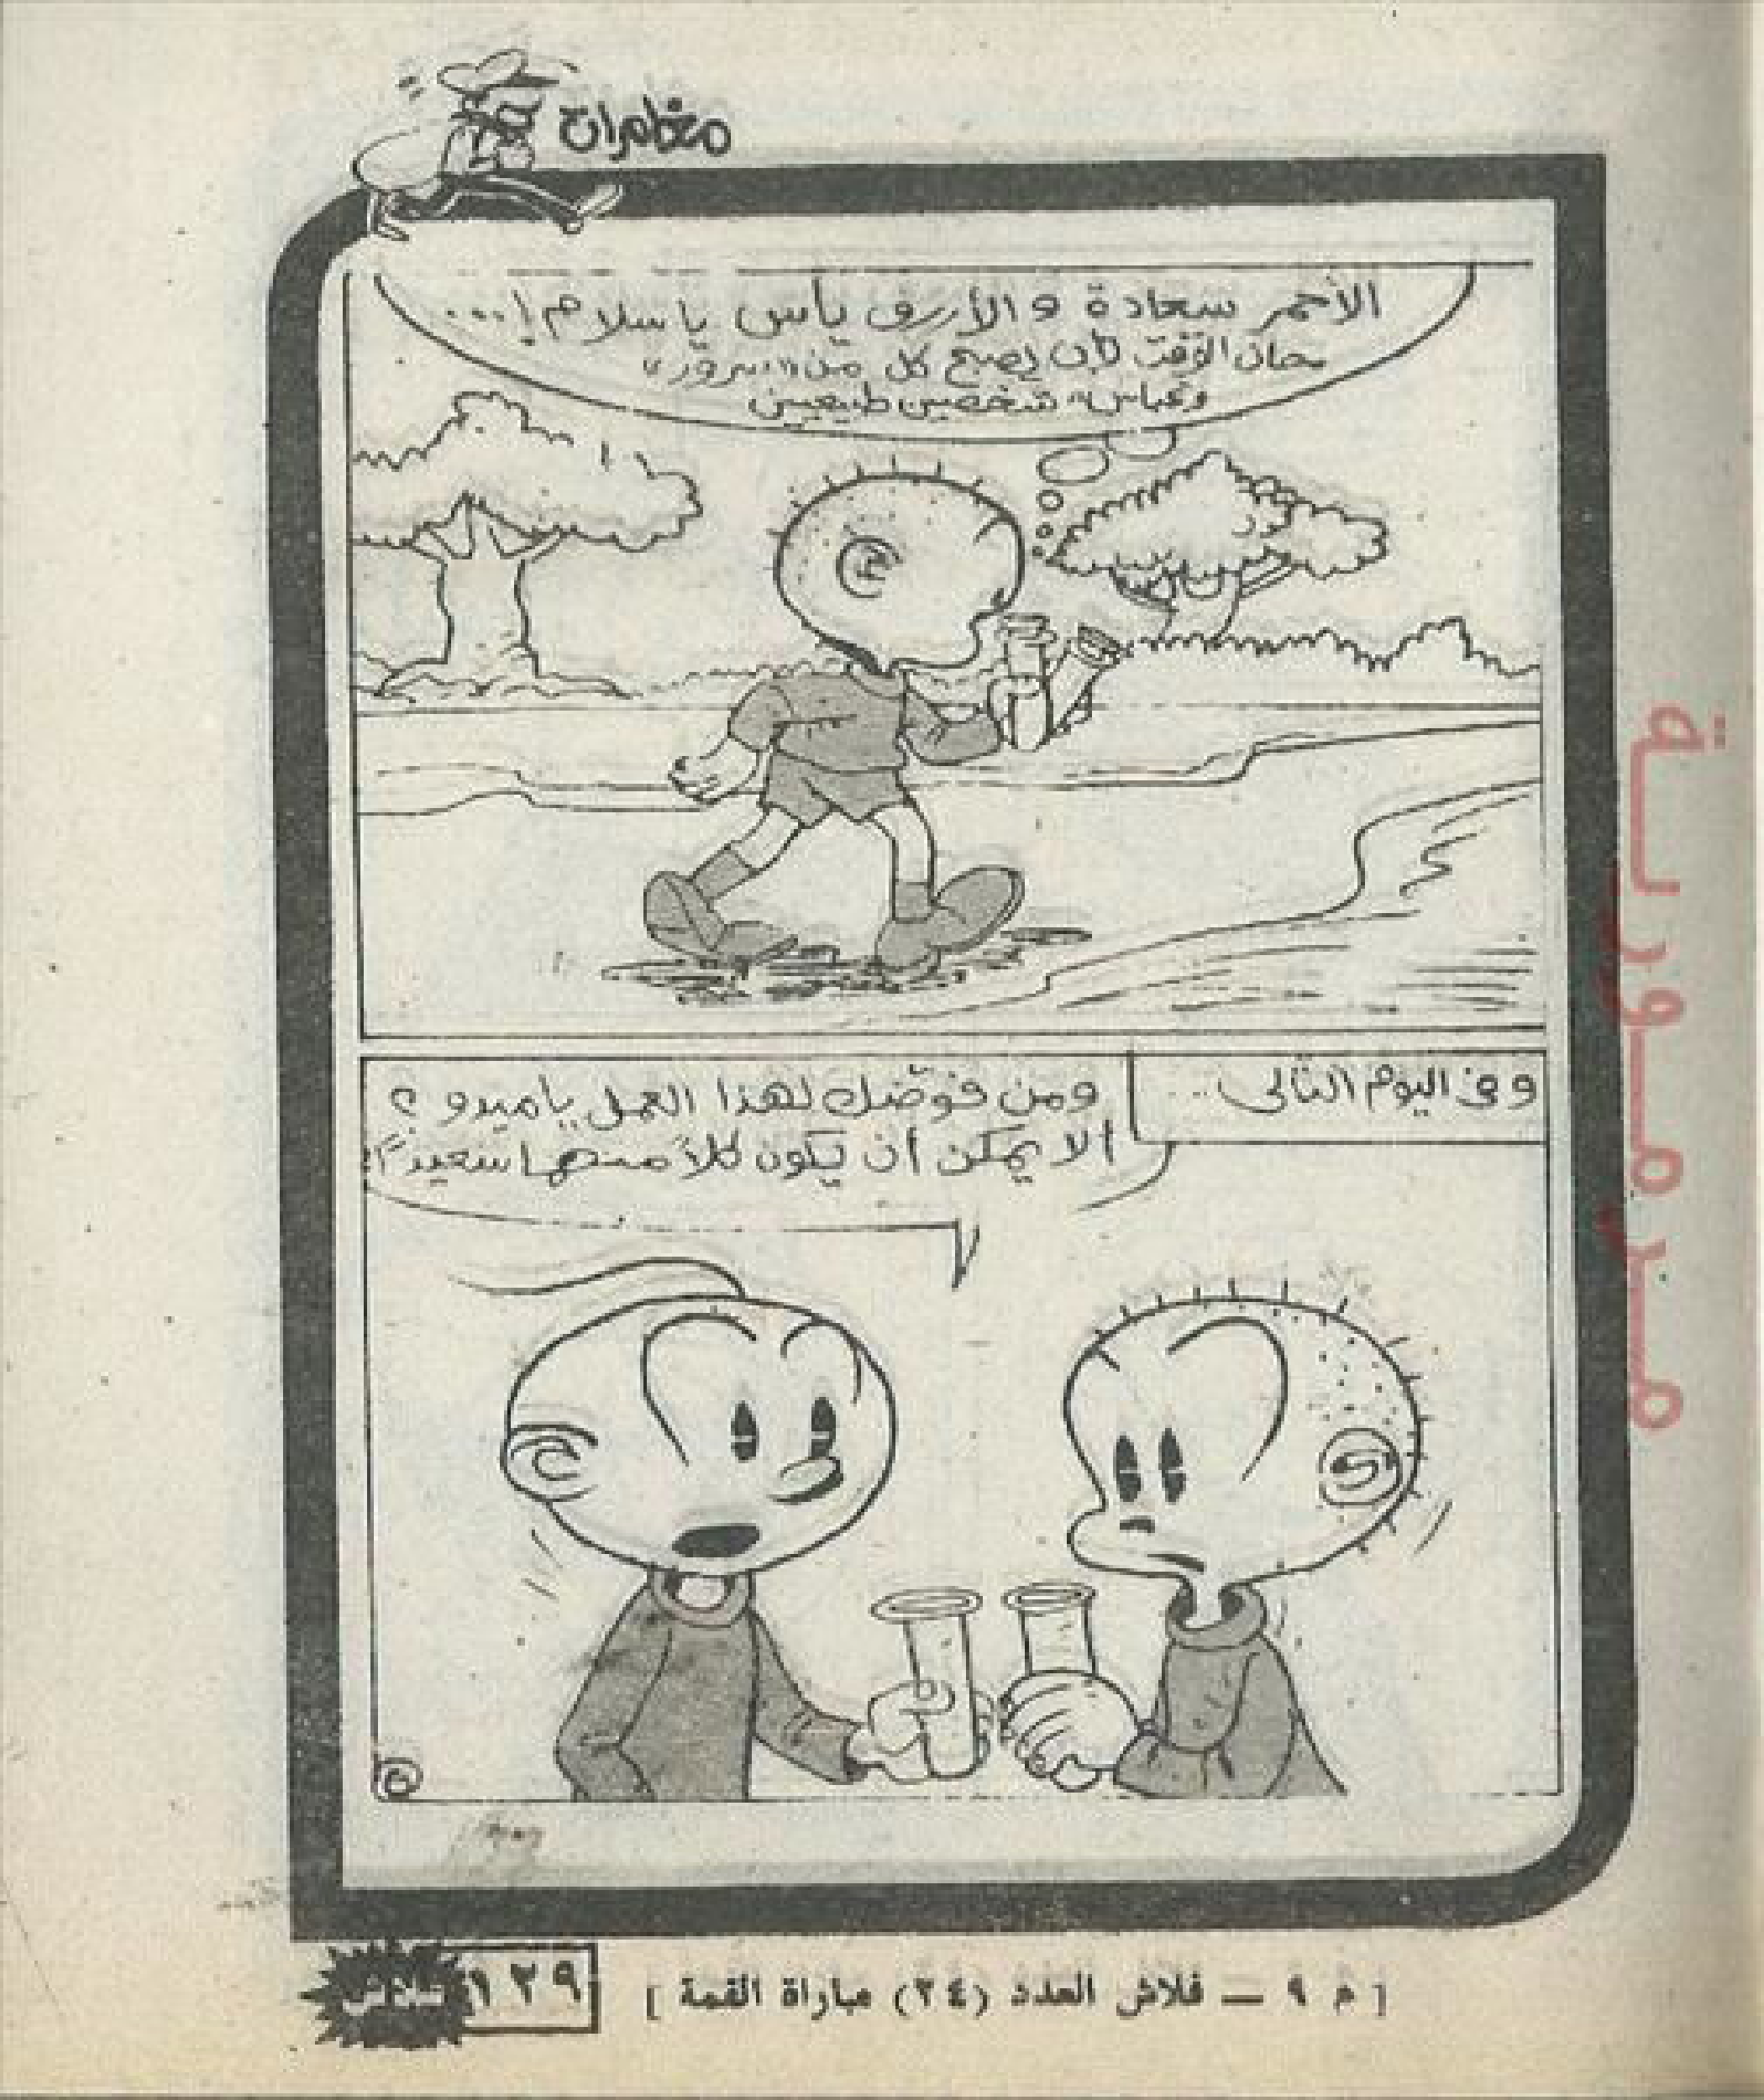 مغامرات
الأحمر سعادة و الأزرق يأس يا سلام!...
حان الوقت لأن يصبح كل من "سرور"
و"عباس" شخصين طبيعيين
وفى اليوم التالى...
ومن فوّضك لهذا العمل يا ميدو ؟
ألا يمكن أن يكون كلاً منهما سعيداً؟
[ م ٩ — فلاش العدد (٢٤) مباراة القمة ]
١٢٩
فلاش